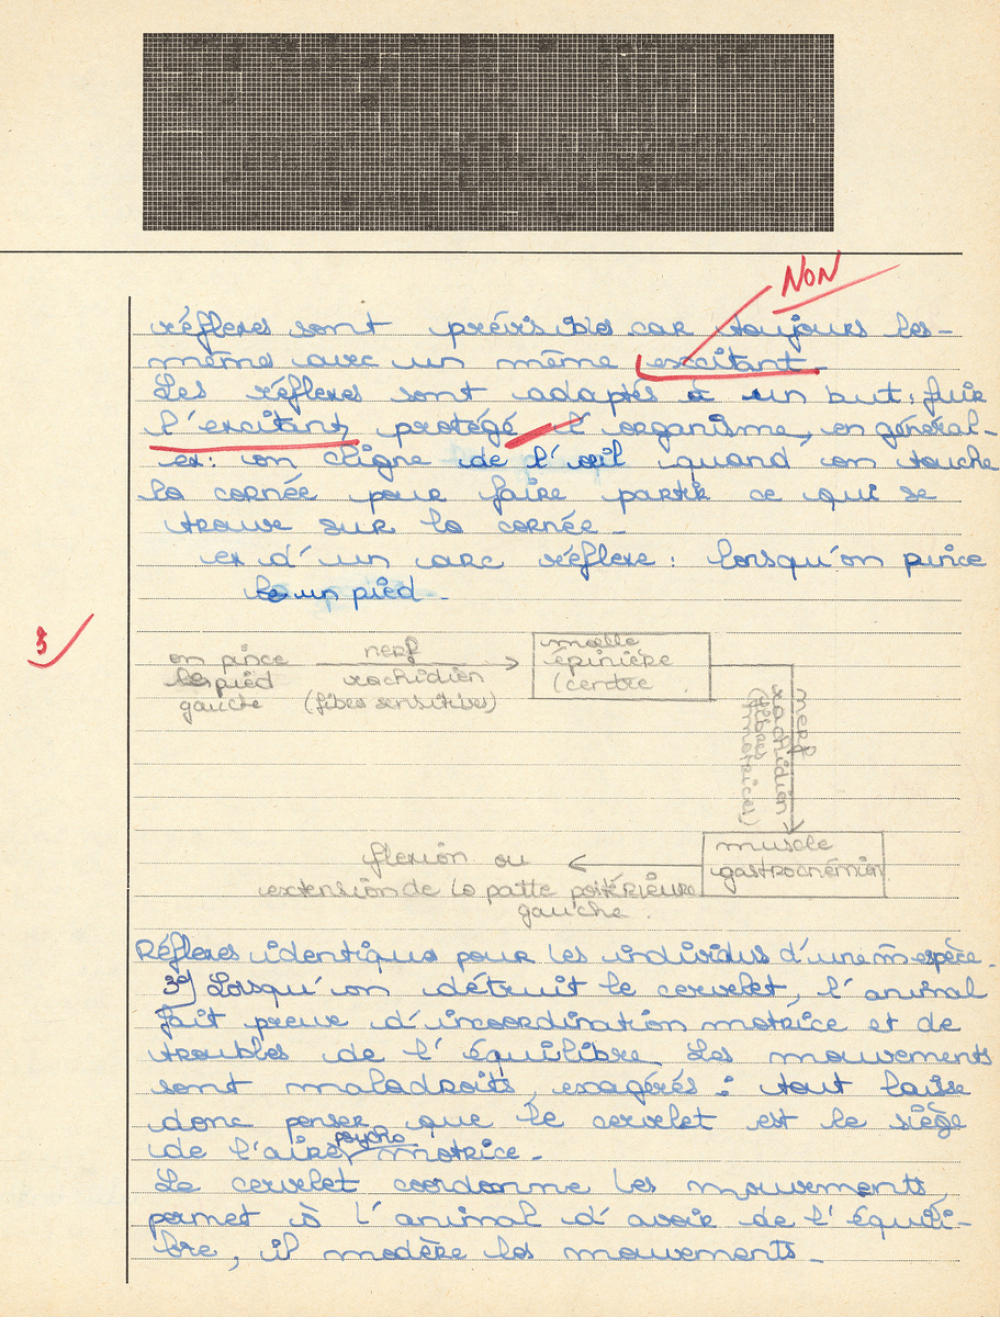 NON
réflexes sont prévisibles car toujours les-
mêmes avec un même excitant.
Les réflexes sont adaptés à un but : fuir
l'excitant, protégé l'organisme, en général-
ex: on cligne de l'œil quand on touche
la cornée pour faire partir ce qui se
trouve sur la cornée_
ex d'un arc réflexe : lorsqu'on pince
un pied_
3
on pince
le pied
gauche
nerf
rachidien
(fibres sensitives)
moelle
épinière
(centre
nerf
rachidien
(fibres
motrices)
muscle
gastrocnémien
flexion ou
extension de la patte postérieure
gauche.
Réflexes identiques pour les individus d'une m espèce_
3°) Lorsqu'on détruit le cervelet, l'animal
fait preuve d'incoordination motrice et de
troubles de l'équilibre. Les mouvements
sont maladroits, exagérés : tout laisse
donc penser que le cervelet est le siège
de l'aire psycho motrice_
Le cervelet coordonne les mouvements
permet à l'animal d'avoir de l'équili-
bre, il modère les mouvements_